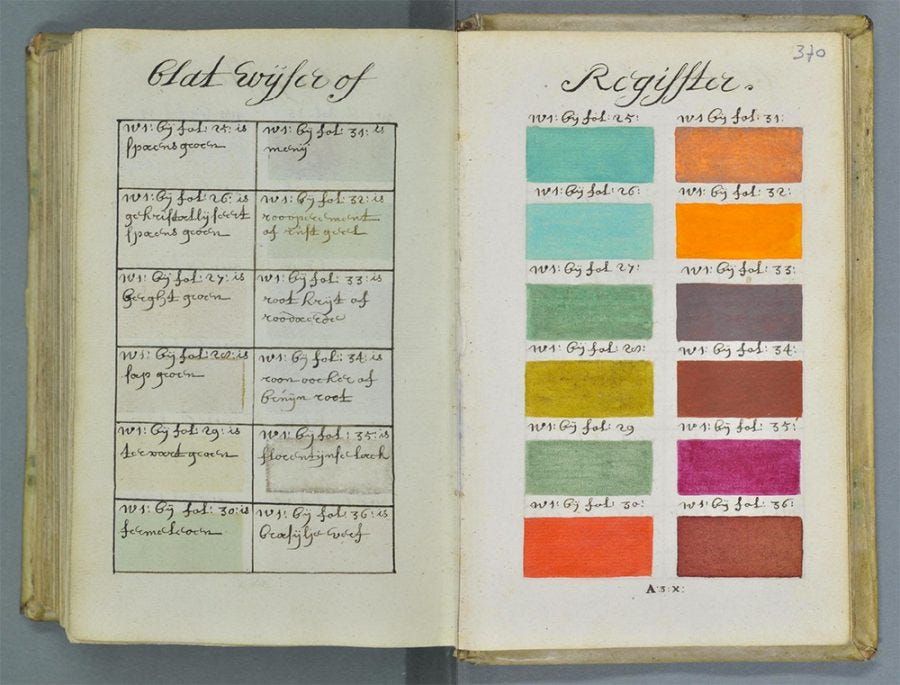 blat wijser of
w1: bij fol: 25: is
spaens groen
w1: bij fol: 31: is
menij
w1: bij fol: 26: is
gekristallijseert
spaens groen
w1: bij fol: 32: is
roooperement
of rust geel
w1: bij fol: 27: is
berght groen
w1: bij fol: 33: is
root krijt of
roodaerde
w1: bij fol: 28: is
sap groen
w1: bij fol: 34: is
roon oocker of
bruijn root
w1: bij fol: 29: is
terwart groen
w1: bij fol: 35: is
florentijnse lack
w1: bij fol: 30: is
fermeleoen
w1: bij fol: 36: is
brasijlje verf
370
Regisster.
w1: bij fol: 25:
w1 bij fol: 31:
w1: bij fol: 26:
w1: bij fol: 32:
w1: bij fol: 27:
w1: bij fol: 33:
w1: bij fol: 28:
w1: bij fol: 34:
w1: bij fol: 29
w1: bij fol: 35:
w1: bij fol: 30:
w1: bij fol: 36:
A:5:X: